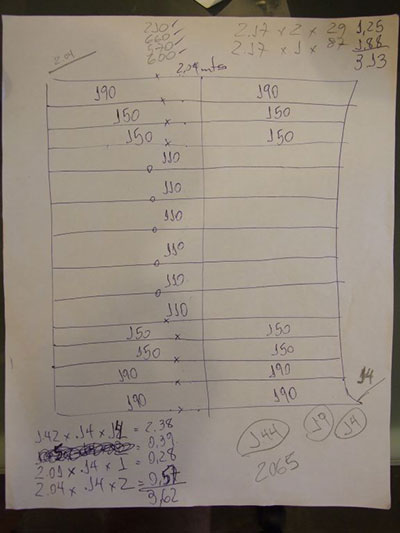 210
660
570
600
2.17 x 2 x 29 1,25
2.17 x 1 x 87 1,88
3,13
2.01
2,04 mts
190 190
150 150
150 150
110
110
110
110
110
110
150 150
150 150
190 190
190 190
14
1.42 x .14 x 14 = 2,38
= 0,39
2.01 x .14 x 1 = 0,28
2.04 x .14 x 2 = 0,57
3,62
.144
19
14
2065